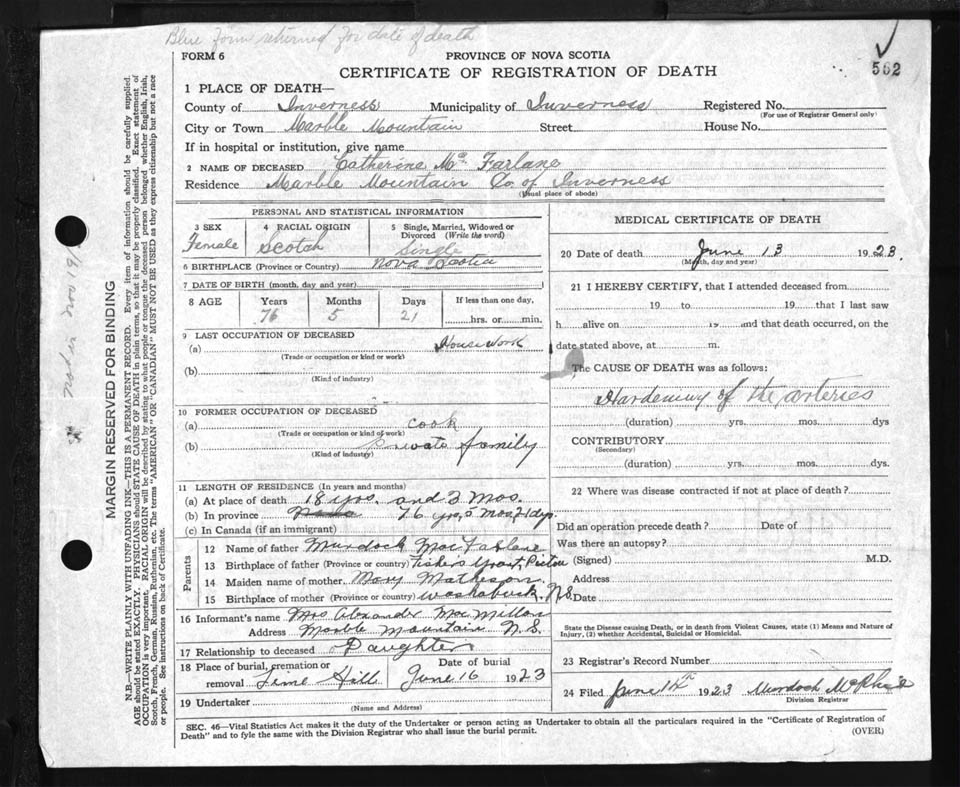 Blue Form returned for date of death
FORM 6
PROVINCE OF NOVA SCOTIA
CERTIFICATE OF REGISTRATION OF DEATH
562
1 PLACE OF DEATH—
County of Inverness Municipality of Inverness Registered No.
(For use of Registrar General only)
City or Town Marble Mountain Street House No.
If in hospital or institution, give name
2 NAME OF DECEASED Catherine Mc Farlane
Residence Marble Mountain Co. of Inverness
(Usual place of abode)
PERSONAL AND STATISTICAL INFORMATION
3 SEX 4 RACIAL ORIGIN 5 Single, Married, Widowed or Divorced (Write the word)
Female Scotch Single
6 BIRTHPLACE (Province or Country) Nova Scotia
7 DATE OF BIRTH (month, day and year)
8 AGE Years Months Days If less than one day,
76 5 21 hrs. or min.
9 LAST OCCUPATION OF DECEASED
(a) House Work
(Trade or occupation or kind or work)
(b)
(Kind of industry)
10 FORMER OCCUPATION OF DECEASED
(a) Cook
(Trade or occupation or kind of work)
(b) Private family
(Kind of industry)
11 LENGTH OF RESIDENCE (In years and months)
(a) At place of death 18 yrs. and 3 Mos.
(b) In province 76 yrs, 5 mos, 21 dys.
(c) In Canada (if an immigrant)
Parents
12 Name of father Murdock Mac Farlane
13 Birthplace of father (Province or country) Fishers Grant, Pictou
14 Maiden name of mother Mary Matheson
15 Birthplace of mother (Province or country) Washabuck, N.S.
16 Informant's name Mrs Alexander Mac Millan
Address Marble Mountain N.S.
17 Relationship to deceased Daughter
18 Place of burial, cremation or removal Lime Hill Date of burial June 16 1923
19 Undertaker
(Name and Address)
MEDICAL CERTIFICATE OF DEATH
20 Date of death June 13 1923.
(Month, day and year)
21 I HEREBY CERTIFY, that I attended deceased from
19 to 19 that I last saw
h alive on 19 and that death occurred, on the
date stated above, at m.
The CAUSE OF DEATH was as follows:
Hardening of the arteries
(duration) yrs. mos. dys
CONTRIBUTORY
(Secondary)
(duration) yrs. mos. dys.
22 Where was disease contracted if not at place of death?
Did an operation precede death? Date of
Was there an autopsy?
(Signed) M.D.
Address
Date
State the Disease causing Death, or in death from Violent Causes, state (1) Means and Nature of
Injury, (2) whether Accidental, Suicidal or Homicidal.
23 Registrar's Record Number
24 Filed June 1923 Murdoch McPhee
Division Registrar
SEC. 46—Vital Statistics Act makes it the duty of the Undertaker or person acting as Undertaker to obtain all the particulars required in the "Certificate of Registration of
Death" and to fyle the same with the Division Registrar who shall issue the burial permit.
(OVER)
MARGIN RESERVED FOR BINDING
N.B.—WRITE PLAINLY WITH UNFADING INK—THIS IS A PERMANENT RECORD. Every item of information should be carefully supplied.
AGE should be stated EXACTLY. PHYSICIANS should STATE CAUSE OF DEATH in plain terms, so that it may be properly classified. Exact statement of
OCCUPATION is very important. RACIAL ORIGIN will be described by stating to what people or tongue the deceased person belonged whether English, Irish,
Scotch, French, German, Russian, Ruthenian, etc. The terms "AMERICAN" OR "CANADIAN" MUST NOT BE USED as they express citizenship but not a race
or people. See instructions on back of Certificate.